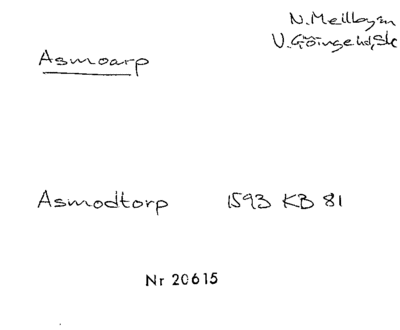 N. Mellby sn
V. Göinge hd, Sk
Asmoarp
Asmodtorp 1593 KB 81
Nr 20615